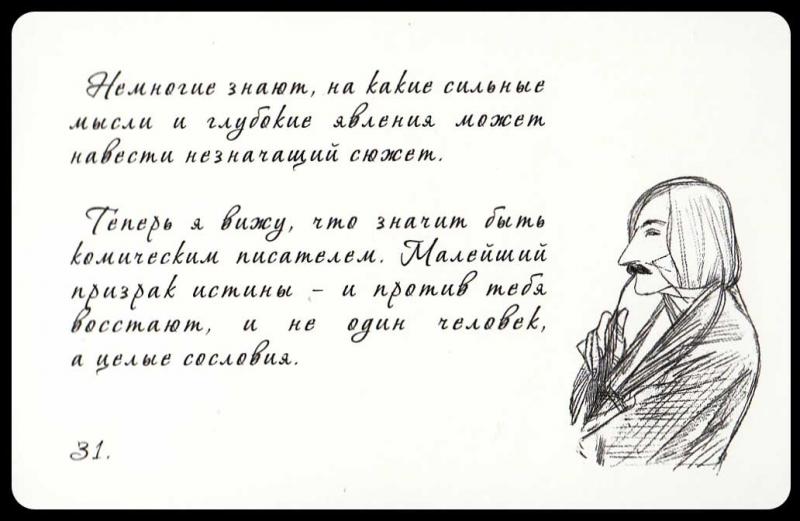 Немногие знают, на какие сильные
мысли и глубокие явления может
навести незначащий сюжет.
Теперь я вижу, что значит быть
комическим писателем. Малейший
призрак истины – и против тебя
восстают, и не один человек,
а целые сословия.
31.